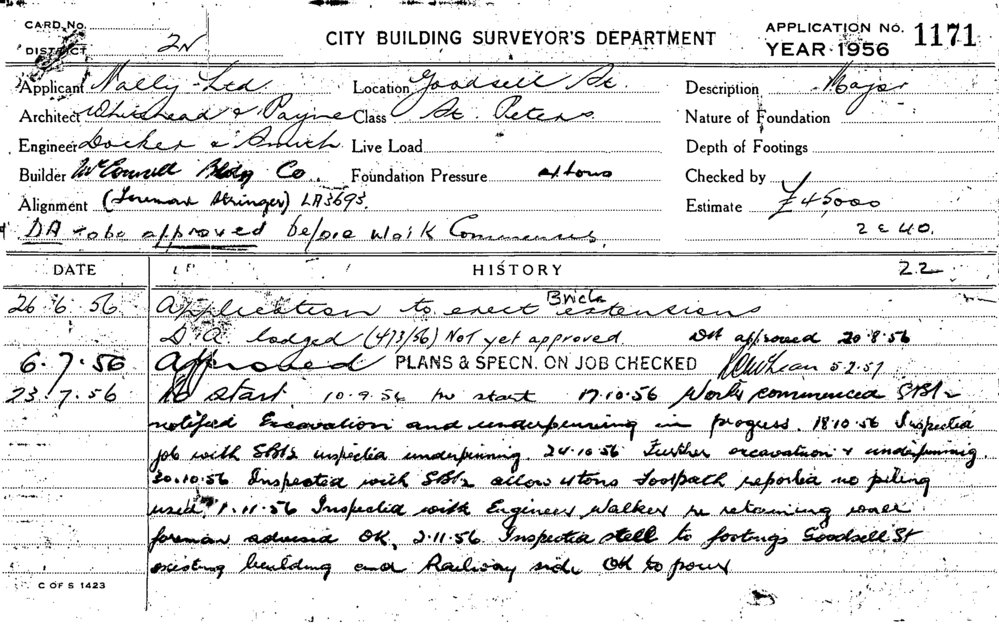 CARD No.
DISTRICT 2N
CITY BUILDING SURVEYOR'S DEPARTMENT
APPLICATION No. 1171
YEAR 1956
Applicant Nally Ltd. Location Goodsell St. Description Major
Architect Whitehead & Payne Class St. Peters Nature of Foundation
Engineer Docker & Smith Live Load Depth of Footings
Builder McConnell Bldg Co. Foundation Pressure 4 tons Checked by
Alignment (Foreman Stringer) LA3693. Estimate £45000
DA to be approved before work Commences. 2 E 40.
DATE HISTORY 22
26 6 56 Application to erect Brick extensions
D.A. lodged (473/56) Not yet approved DA approved 20.8.56
6.7.56 Approved PLANS & SPECN. ON JOB CHECKED 5.2.57
23.7.56 No start. 10.9.56 no start 17.10.56 Works commenced SBI2
notified Excavation and underpinning in progress. 18.10.56 Inspected
job with SBI2 inspected underpinning. 24.10.56 Further excavation & underpinning.
30.10.56 Inspected with SBI2 allow 4 tons Footpath reported no piling
used. 1.11.56 Inspected with Engineer Walker re retaining wall
foreman advised OK. 2.11.56 Inspected steel to footings Goodsell St
existing building and Railway side OK to pour
C OF S 1423